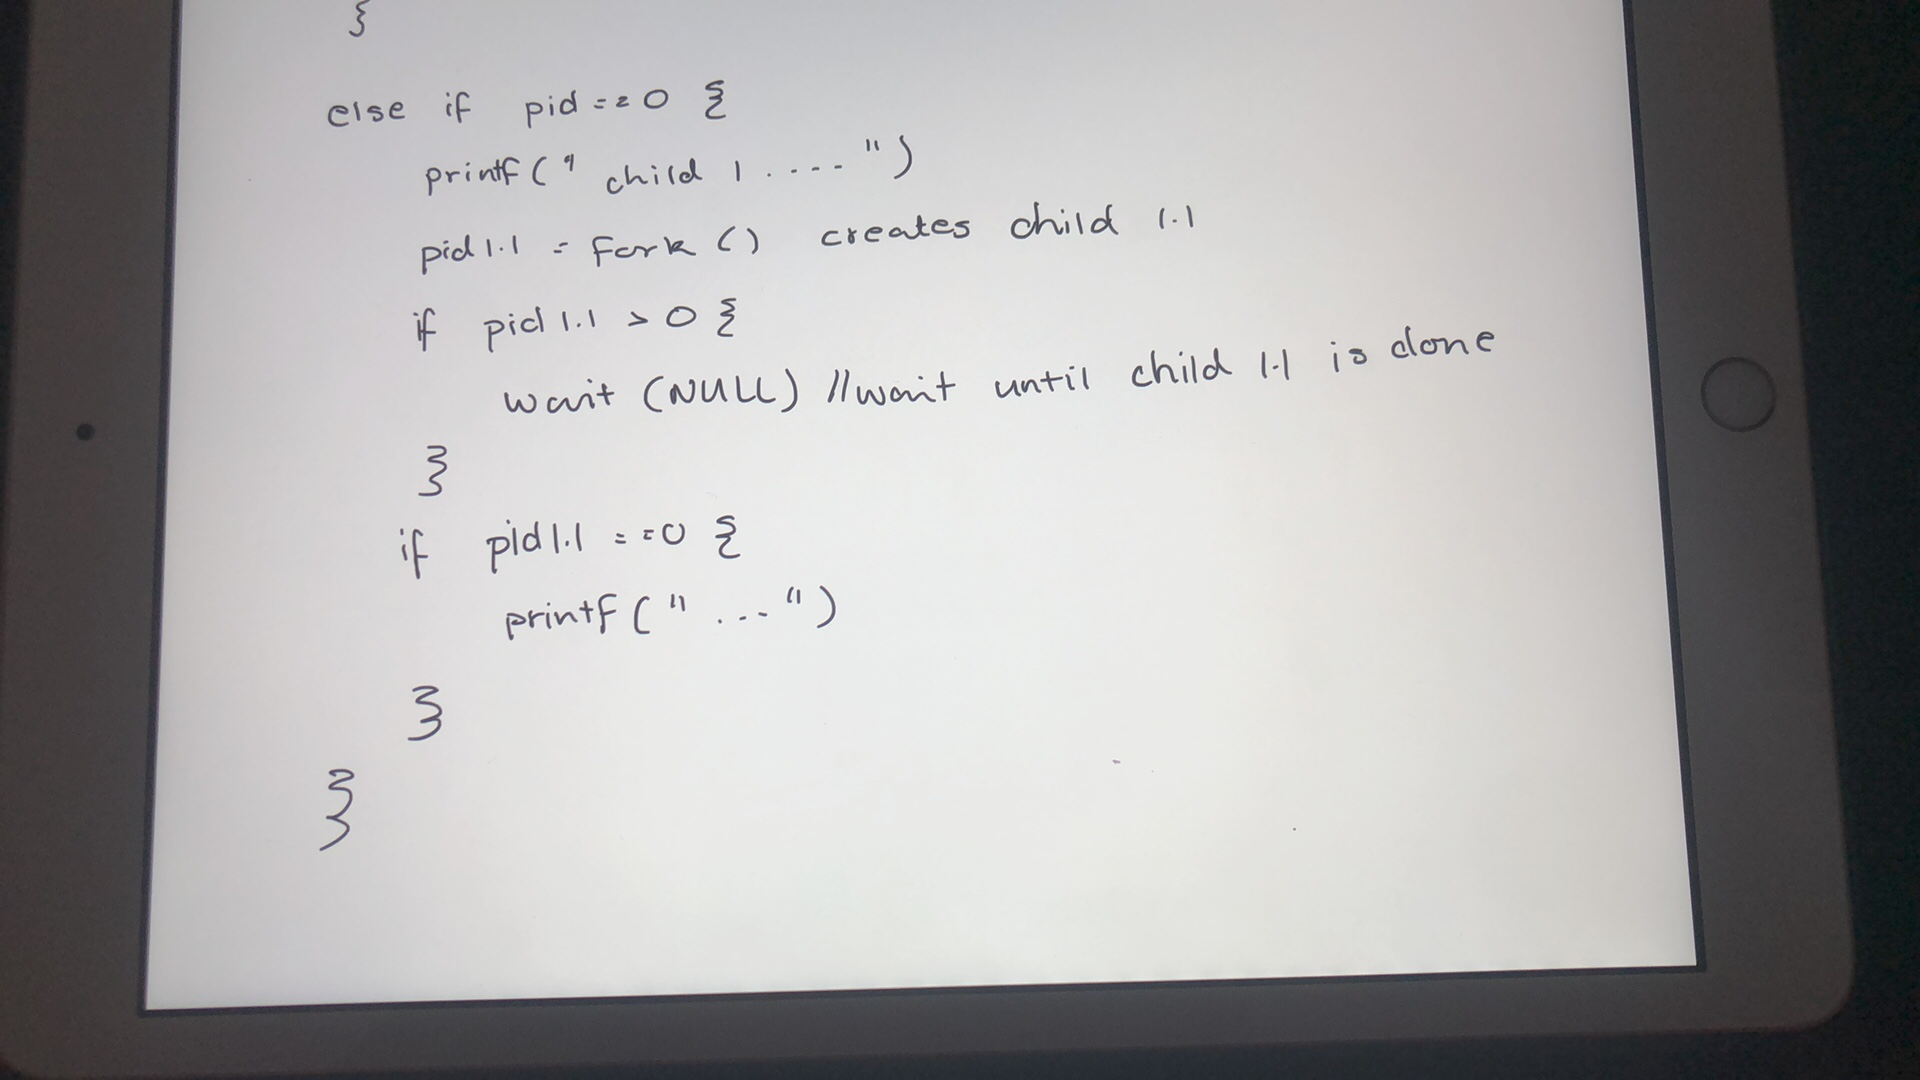 }
else if pid == 0 {
printf(" child 1 .... ")
pid 1.1 = fork () creates child 1.1
if pid 1.1 > 0 {
wait (NULL) //wait until child 1.1 is done
}
if pid 1.1 == 0 {
printf (" ... ")
}
}